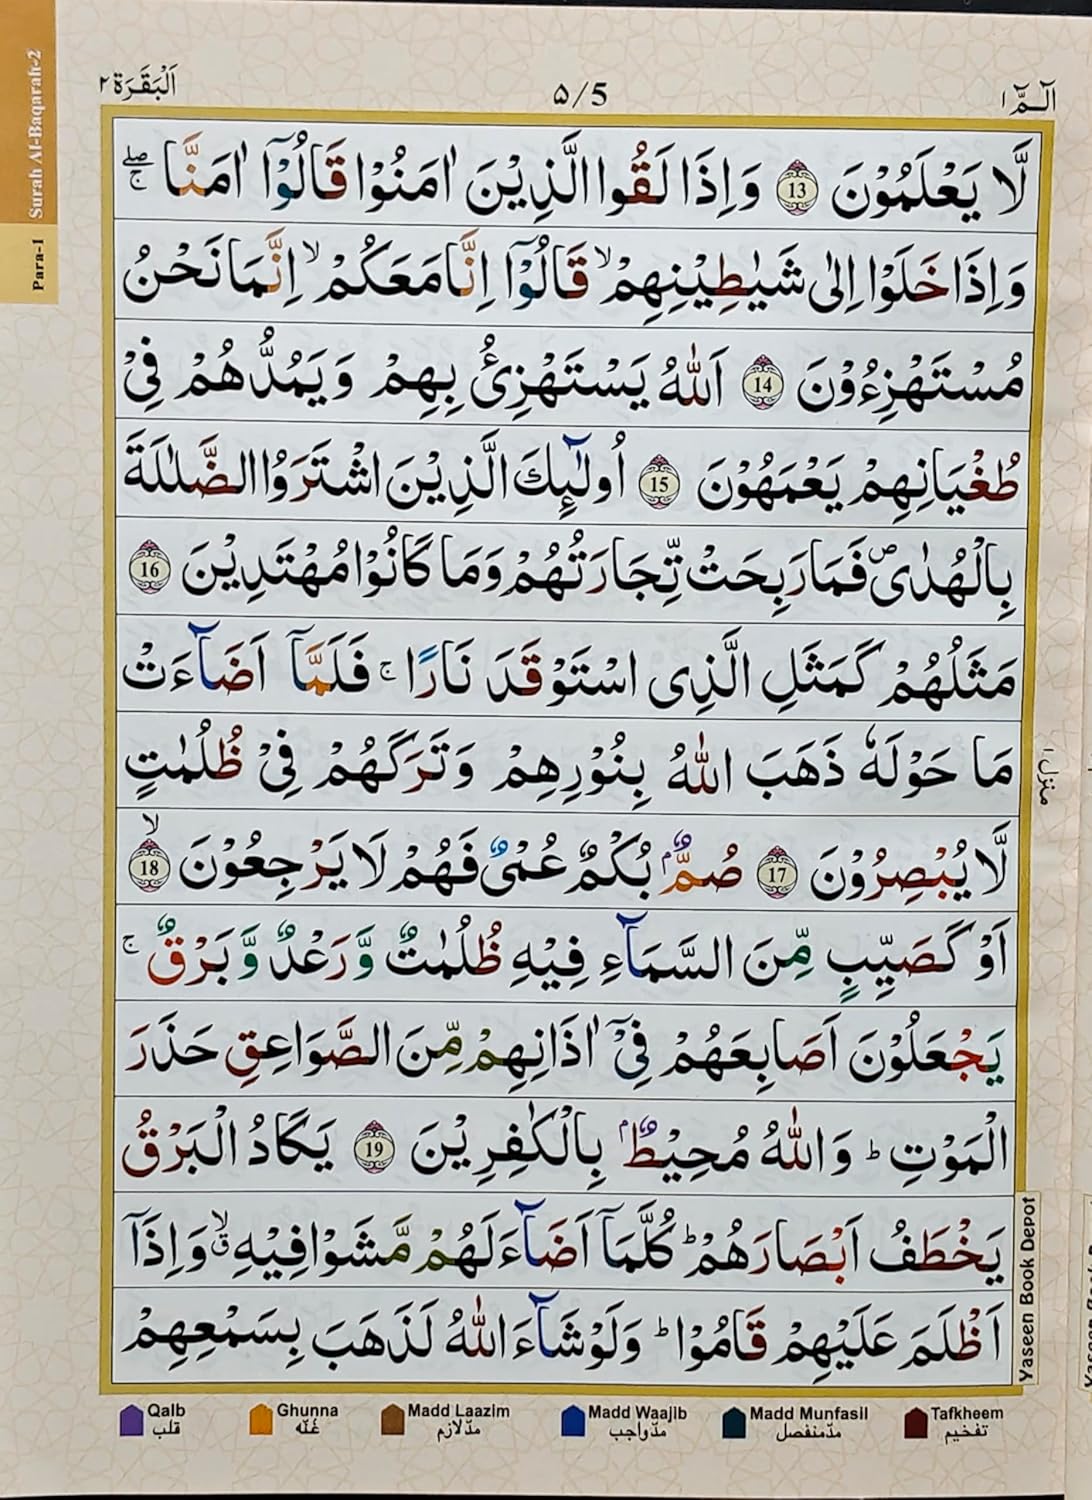 Surah Al-Baqarah-2
Para-1
الٓمّٓ ۱
۵/5
اَلْبَقَرَة ۲
لَّا يَعْلَمُوْنَ 13 وَاِذَا لَقُوا الَّذِيْنَ اٰمَنُوْا قَالُوْٓا اٰمَنَّا ۖۚ
وَاِذَا خَلَوْا اِلٰى شَيٰطِيْنِهِمْ ۙ قَالُوْٓا اِنَّا مَعَكُمْ ۙ اِنَّمَا نَحْنُ
مُسْتَهْزِءُوْنَ 14 اَللّٰهُ يَسْتَهْزِئُ بِهِمْ وَيَمُدُّهُمْ فِيْ
طُغْيَانِهِمْ يَعْمَهُوْنَ 15 اُولٰٓئِكَ الَّذِيْنَ اشْتَرَوُا الضَّلٰلَةَ
بِالْهُدٰى ۪ فَمَا رَبِحَتْ تِّجَارَتُهُمْ وَمَا كَانُوْا مُهْتَدِيْنَ 16
مَثَلُهُمْ كَمَثَلِ الَّذِى اسْتَوْقَدَ نَارًا ۚ فَلَمَّآ اَضَآءَتْ
مَا حَوْلَهٗ ذَهَبَ اللّٰهُ بِنُوْرِهِمْ وَتَرَكَهُمْ فِيْ ظُلُمٰتٍ
لَّا يُبْصِرُوْنَ 17 صُمٌّۢ بُكْمٌ عُمْىٌ فَهُمْ لَا يَرْجِعُوْنَ 18 ۙ
اَوْ كَصَيِّبٍ مِّنَ السَّمَآءِ فِيْهِ ظُلُمٰتٌ وَّرَعْدٌ وَّبَرْقٌ ۚ
يَجْعَلُوْنَ اَصَابِعَهُمْ فِيْٓ اٰذَانِهِمْ مِّنَ الصَّوَاعِقِ حَذَرَ
الْمَوْتِ ؕ وَاللّٰهُ مُحِيْطٌۢ بِالْكٰفِرِيْنَ 19 يَكَادُ الْبَرْقُ
يَخْطَفُ اَبْصَارَهُمْ ؕ كُلَّمَآ اَضَآءَ لَهُمْ مَّشَوْا فِيْهِ ۙق وَاِذَآ
اَظْلَمَ عَلَيْهِمْ قَامُوْا ؕ وَلَوْ شَآءَ اللّٰهُ لَذَهَبَ بِسَمْعِهِمْ
منزل ۱
Yaseen Book Depot
Qalb Ghunna Madd Laazim Madd Waajib Madd Munfasil Tafkheem
قلب غُنّه مدّلازم مدّواجب مدّمنفصل تفخیم